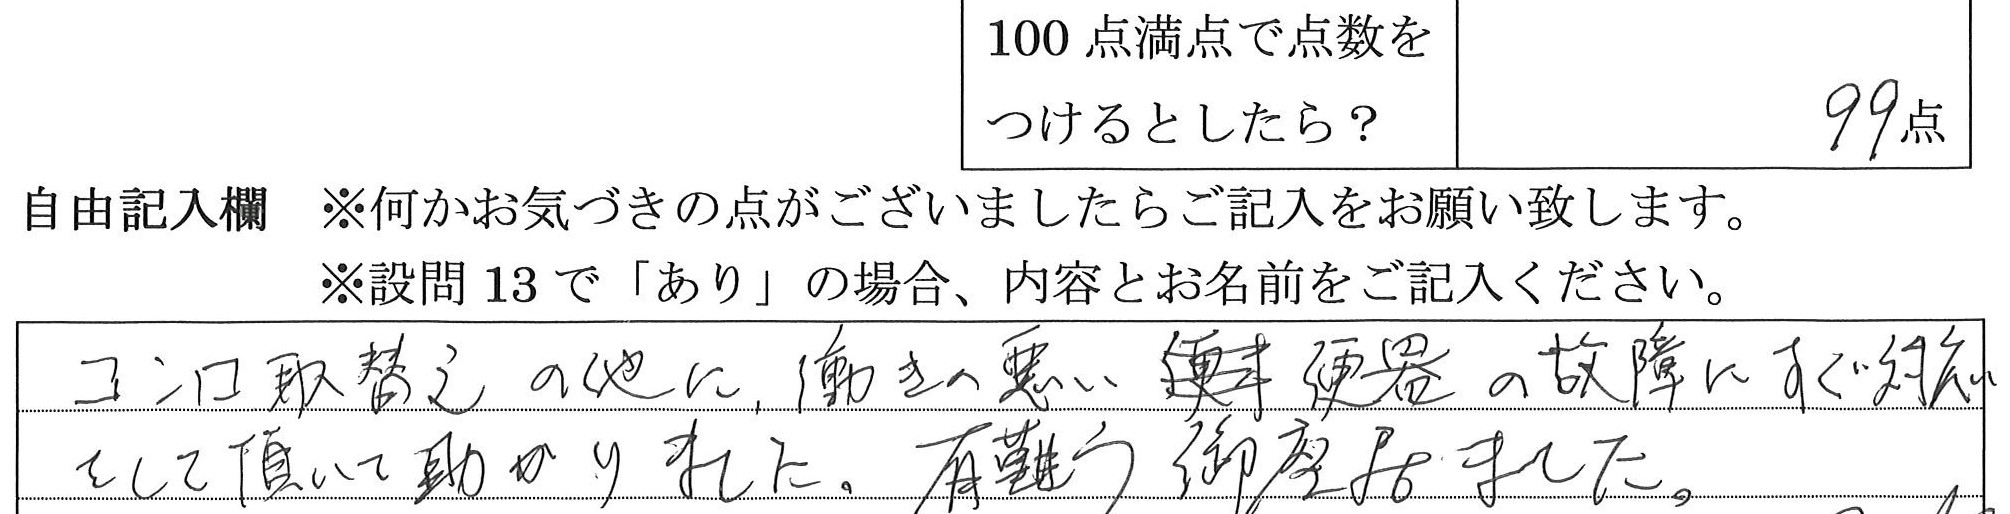 100 点満点で点数を
つけるとしたら？
99点
自由記入欄 ※何かお気づきの点がございましたらご記入をお願い致します。
※設問 13 で「あり」の場合、内容とお名前をご記入ください。
コンロ取替えの他に、働きの悪い 便器の故障にすぐ対応
をして頂いて助かりました。有難う御座居ました。